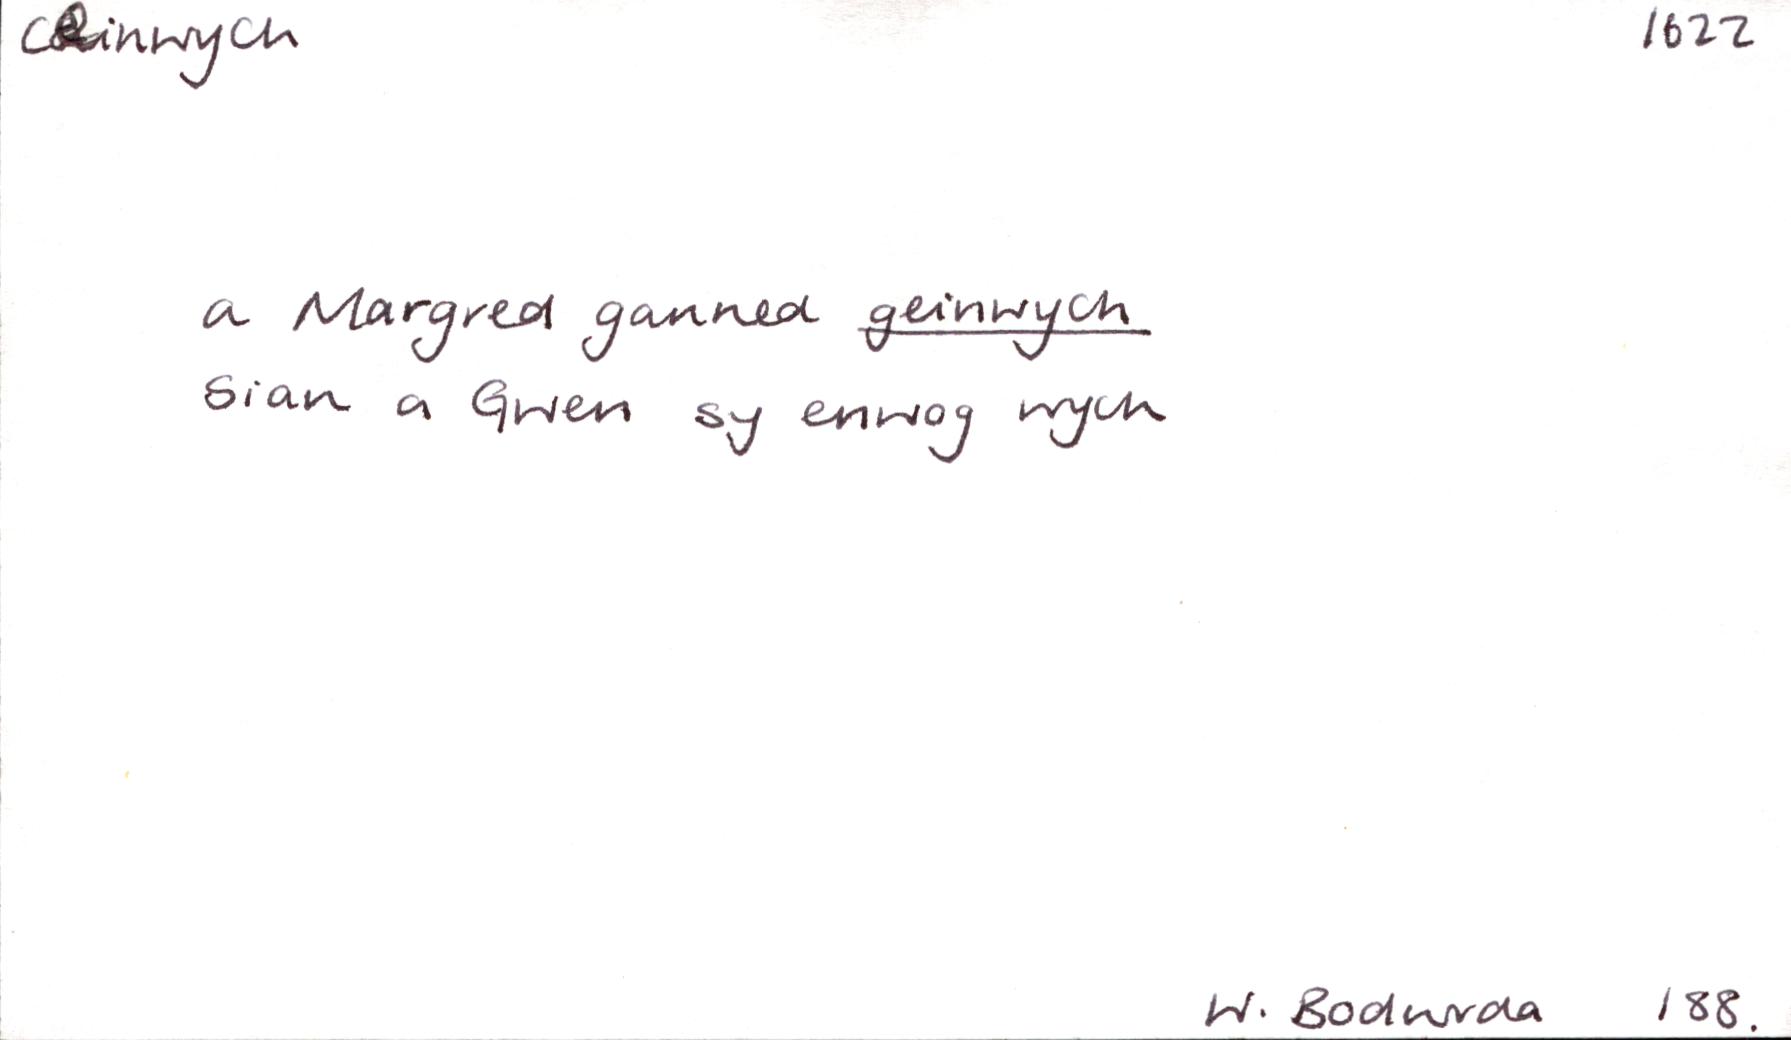 Ceinwych 1622
a Margred ganned geinwych
Sian a Gwen sy enwog wych
W. Bodwrda 188.